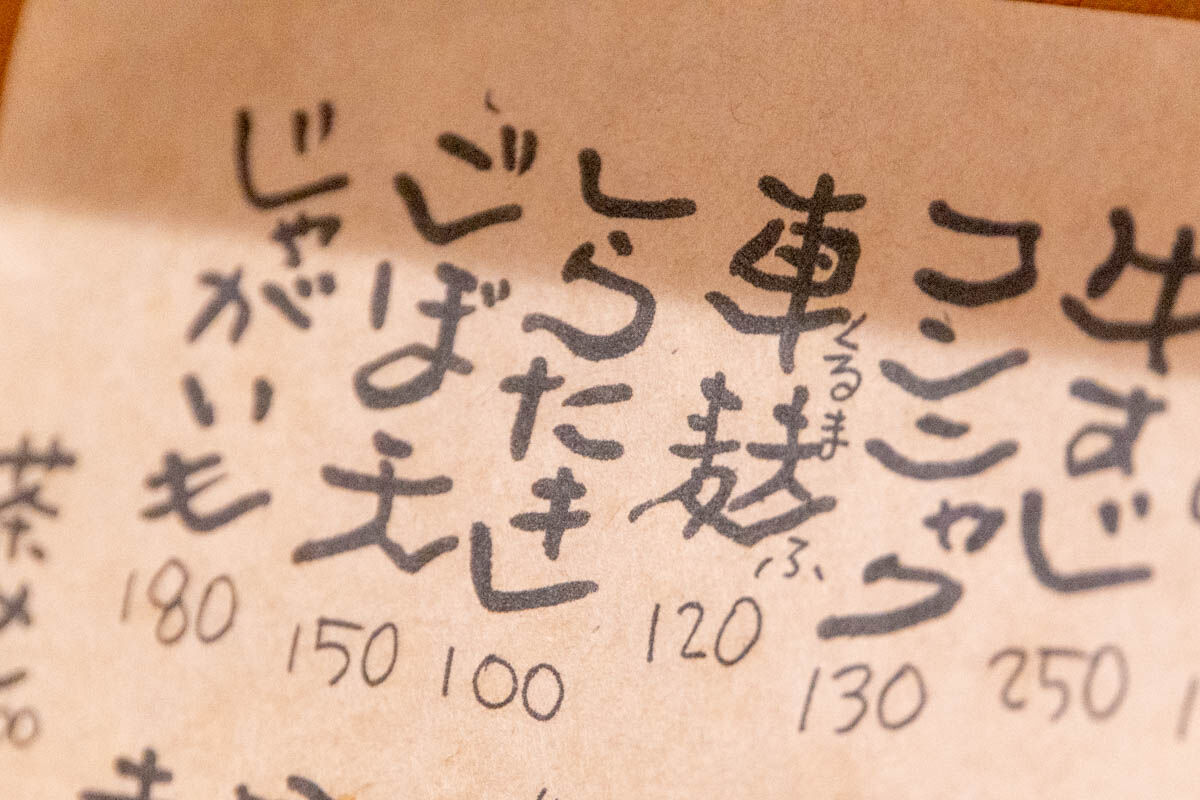 牛すじ
250
コンニャク
130
車麩
くるま
ふ
120
しらたき
100
ごぼ天
150
じゃがいも
180
茶め